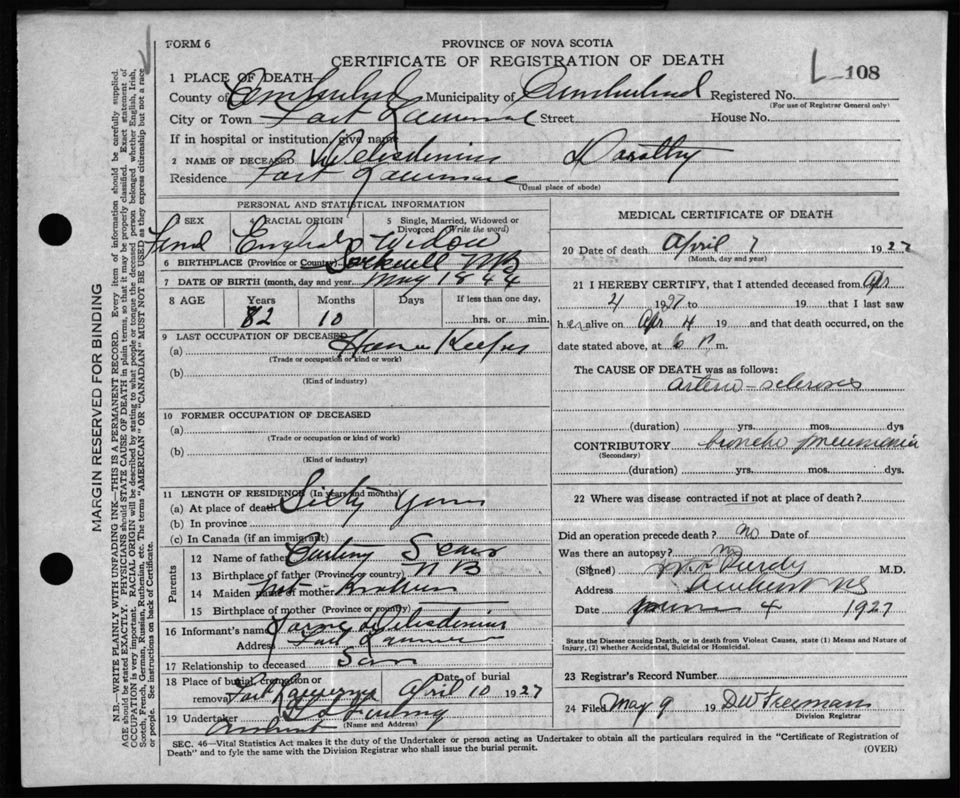 FORM 6
PROVINCE OF NOVA SCOTIA
CERTIFICATE OF REGISTRATION OF DEATH
L-108
1 PLACE OF DEATH—
County of Cumberland Municipality of Cumberland Registered No.
(For use of Registrar General only)
City or Town Fort Lawrence Street House No.
If in hospital or institution, give name
2 NAME OF DECEASED Dorathy
Residence Fort Lawrence
(Usual place of abode)
PERSONAL AND STATISTICAL INFORMATION
3 SEX 4 RACIAL ORIGIN 5 Single, Married, Widowed or Divorced (Write the word)
Femal English Widow
6 BIRTHPLACE (Province or Country) NB
7 DATE OF BIRTH (month, day and year) May 1844
8 AGE Years Months Days If less than one day,
82 10 hrs. or min.
9 LAST OCCUPATION OF DECEASED
(a) House Keeper
(Trade or occupation or kind of work)
(b)
(Kind of industry)
10 FORMER OCCUPATION OF DECEASED
(a)
(Trade or occupation or kind of work)
(b)
(Kind of industry)
11 LENGTH OF RESIDENCE (In years and months)
(a) At place of death Sixty Years
(b) In province
(c) In Canada (if an immigrant)
Parents
12 Name of father Sears
13 Birthplace of father (Province or country) N B
14 Maiden name of mother Not Known
15 Birthplace of mother (Province or country)
16 Informant's name
Address Fort Lawrence
17 Relationship to deceased Son
18 Place of burial, cremation or removal Fort Lawrence Date of burial April 10 1927
19 Undertaker
(Name and Address)
Amherst
MEDICAL CERTIFICATE OF DEATH
20 Date of death April 7 1927
(Month, day and year)
21 I HEREBY CERTIFY, that I attended deceased from Apr
4 1927 to 19 that I last saw
her alive on Apr 4 19 and that death occurred, on the
date stated above, at 6 P m.
The CAUSE OF DEATH was as follows:
arterio-sclerosis
(duration) yrs. mos. dys
CONTRIBUTORY broncho pneumonia
(Secondary)
(duration) yrs. mos. dys.
22 Where was disease contracted if not at place of death?
Did an operation precede death? No Date of
Was there an autopsy? no
(Signed) Purdy M.D.
Address Amherst NS
Date 4 1927
State the Disease causing Death, or in death from Violent Causes, state (1) Means and Nature of Injury, (2) whether Accidental, Suicidal or Homicidal.
23 Registrar's Record Number
24 Filed May 9 19 D W Freeman
Division Registrar
SEC. 46—Vital Statistics Act makes it the duty of the Undertaker or person acting as Undertaker to obtain all the particulars required in the "Certificate of Registration of
Death" and to fyle the same with the Division Registrar who shall issue the burial permit.
(OVER)
MARGIN RESERVED FOR BINDING
N.B.—WRITE PLAINLY WITH UNFADING INK—THIS IS A PERMANENT RECORD. Every item of information should be carefully supplied.
AGE should be stated EXACTLY. PHYSICIANS should STATE CAUSE OF DEATH in plain terms, so that it may be properly classified. Exact statement of
OCCUPATION is very important. RACIAL ORIGIN will be described by stating to what people or tongue the deceased person belonged whether English, Irish,
Scotch, French, German, Russian, Ruthenian, etc. The terms "AMERICAN" OR "CANADIAN" MUST NOT BE USED as they express citizenship but not a race
or people. See instructions on back of Certificate.